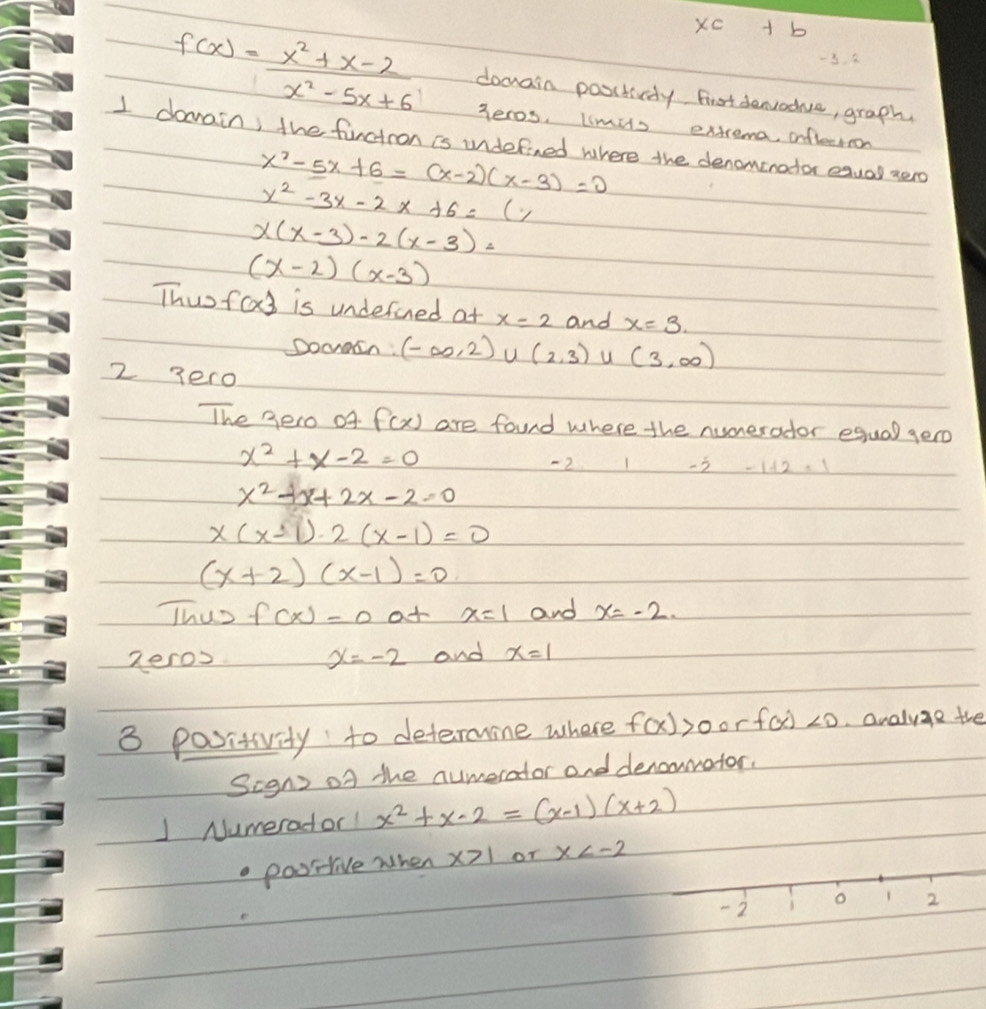 xc + b
-3 2
f(x) = x² + x - 2 / x² - 5x + 6 domain positivity. First derivative, graph,
zeros. limits extrema, inflection
1 domain, the function is undefined where the denominator equal zero
x² - 5x + 6 = (x-2)(x-3) = 0
x² - 3x - 2x + 6 = (
x(x-3) - 2(x-3) =
(x-2) (x-3)
Thus f(x) is undefined at x = 2 and x = 3.
Domain: (-∞, 2) ∪ (2, 3) ∪ (3, ∞)
2 zero
The zero of f(x) are found where the numerator equal zero
x² + x - 2 = 0 -2 1 -2 -1+2 = 1
x² - x + 2x - 2 = 0
x(x-1) . 2(x-1) = 0
(x+2) (x-1) = 0.
Thus f(x) = 0 at x = 1 and x = -2.
zeros. x = -2 and x = 1
3 positivity: to determine where f(x) > 0 or f(x) < 0. analyze the
Signs of the numerator and denominator.
1 Numerator: x² + x - 2 = (x-1)(x+2)
• positive when x > 1 or x < -2
-2 1 0 1 2